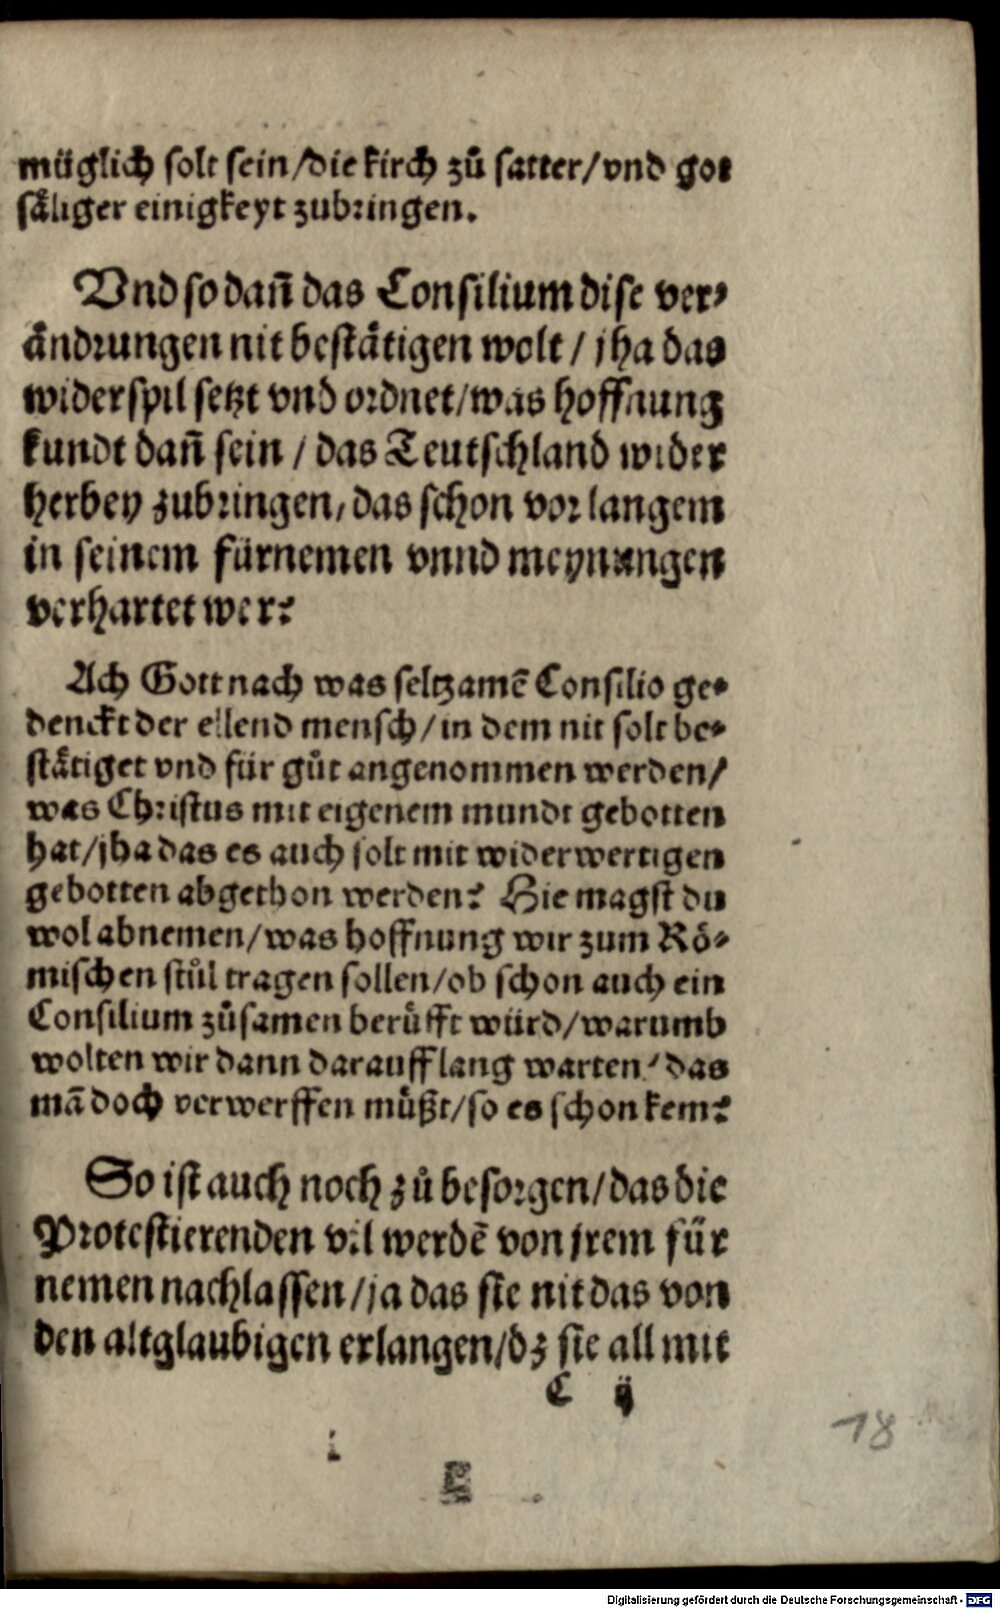 müglich solt sein/die kirch zů satter/vnd got
såliger einigkeyt zubringen.
Vnd so dañ das Consilium dise ver-
åndrungen nit beståtigen wolt/ jha das
widerspil setzt vnd ordnet/was hoffnung
kundt dañ sein/ das Teutschland wider
herbey zubringen, das schon vor langem
in seinem fürnemen vnnd meynungen
verhartet wer?
Ach Gott nach was seltzamē Consilio ge-
denckt der ellend mensch/in dem nit solt be-
ståtiget vnd für gůt angenommen werden/
was Christus mit eigenem mundt gebotten
hat/jha das es auch solt mit widerwertigen
gebotten abgethon werden? Hie magst du
wol abnemen/was hoffnung wir zum Rö-
mischen stůl tragen sollen/ob schon auch ein
Consilium zůsamen berůfft würd/warumb
wolten wir dann darauff lang warten/das
mā doch verwerffen müßt/so es schon kem?
So ist auch noch zů besorgen/das die
Protestierenden vil werdē von jrem für
nemen nachlassen/ja das sie nit das von
den altglaubigen erlangen/dz sie all mit
C ij
18
Digitalisierung gefördert durch die Deutsche Forschungsgemeinschaft - DFG